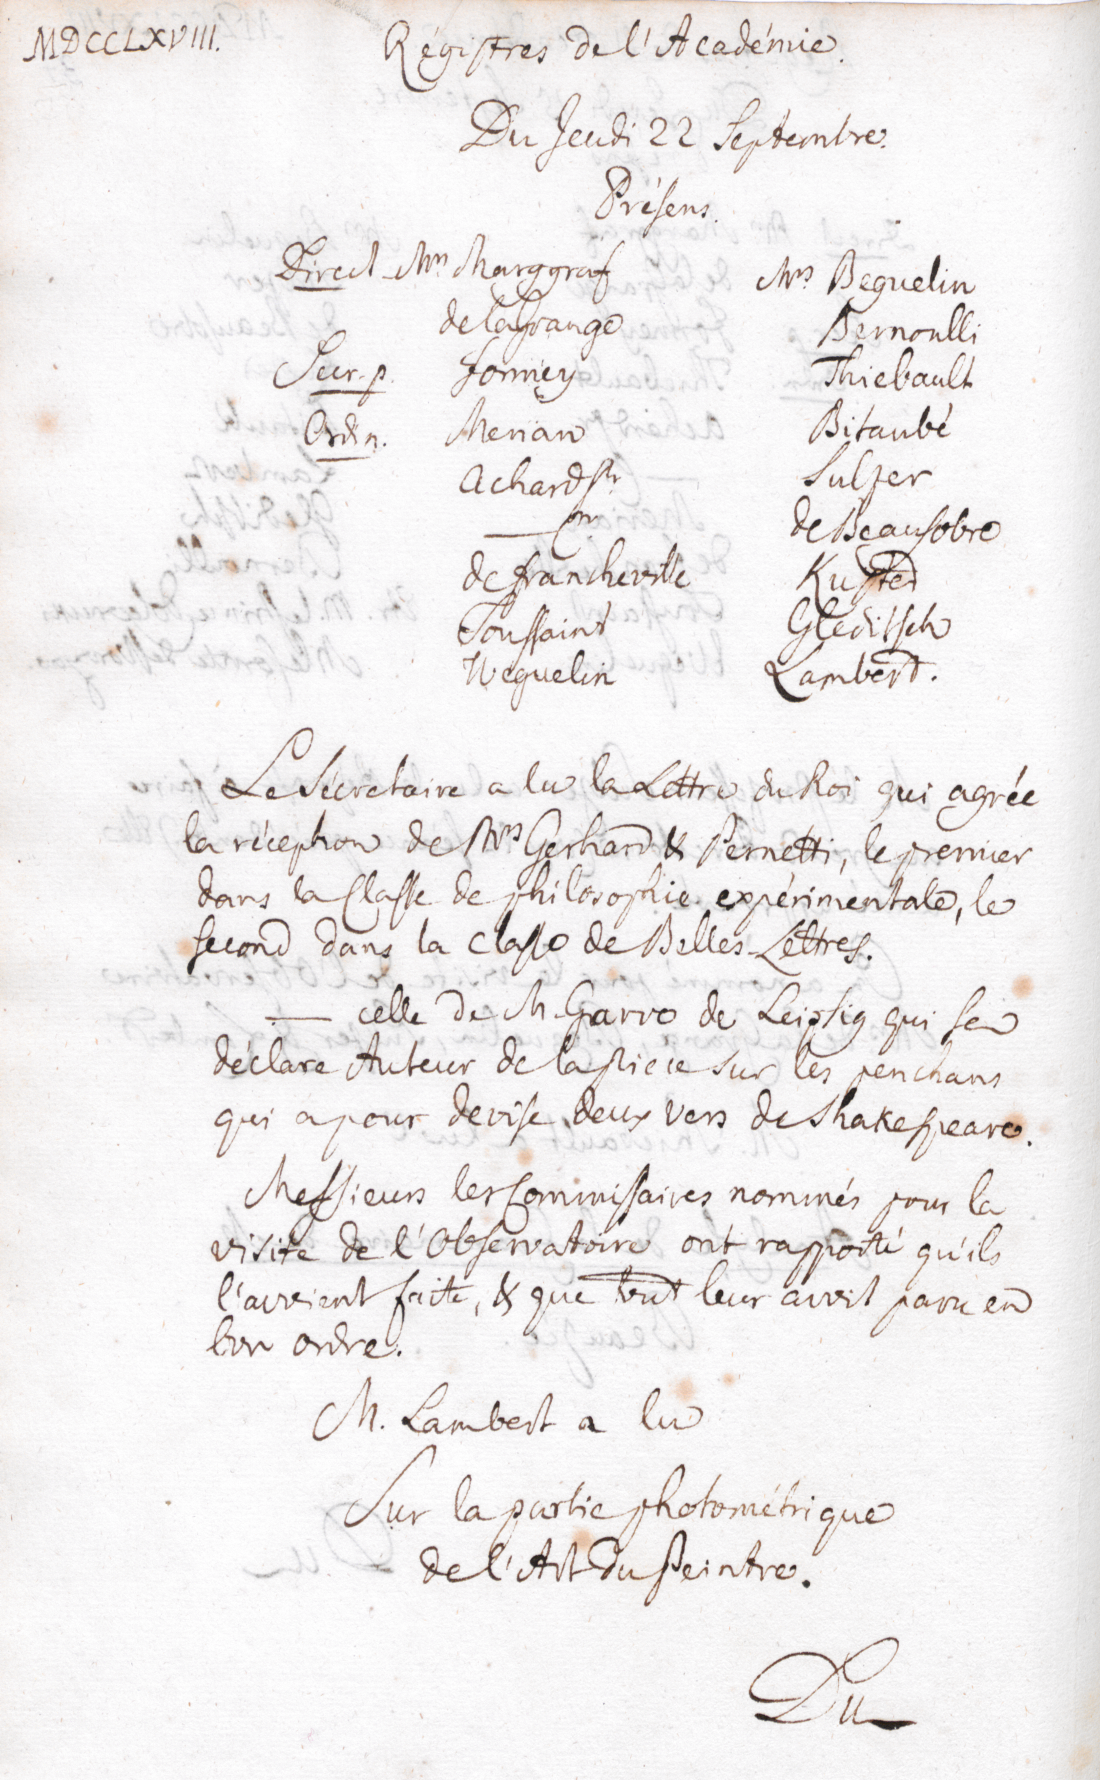 MDCCLXVIII.
Régistres de l'Académie.
Du Jeudi 22 Septembre.
Présens.
Direct. Mrs Marggraf
de la Grange
Secr. p. Formey
Ordin. Merian
Achard Sr
— jun
de Francheville
Toussaint
Weguelin
Mrs Beguelin
Bernoulli
Thiebault
Bitaubé
Sulzer
de Beausobre
Kuster
Gleditsch
Lambert.
Le Sécretaire a lu la Lettre du Roi qui agrée
la réception de Mrs Gerhard & Pernetti, le premier
dans la Classe de philosophie expérimentale, le
second dans la Classe de Belles-Lettres.
— celle de M. Garve de Leipsig qui se
déclare Auteur de la piece sur les penchans
qui a pour devise deux vers de Shakespeare.
Messieurs les Commissaires nommés pour la
visite de l'Observatoire ont rapporté qu'ils
l'avoient faite, & que tout leur avoit paru en
bon ordre.
M. Lambert a lu
Sur la partie photométrique
de l'Art du Peintre.
Du